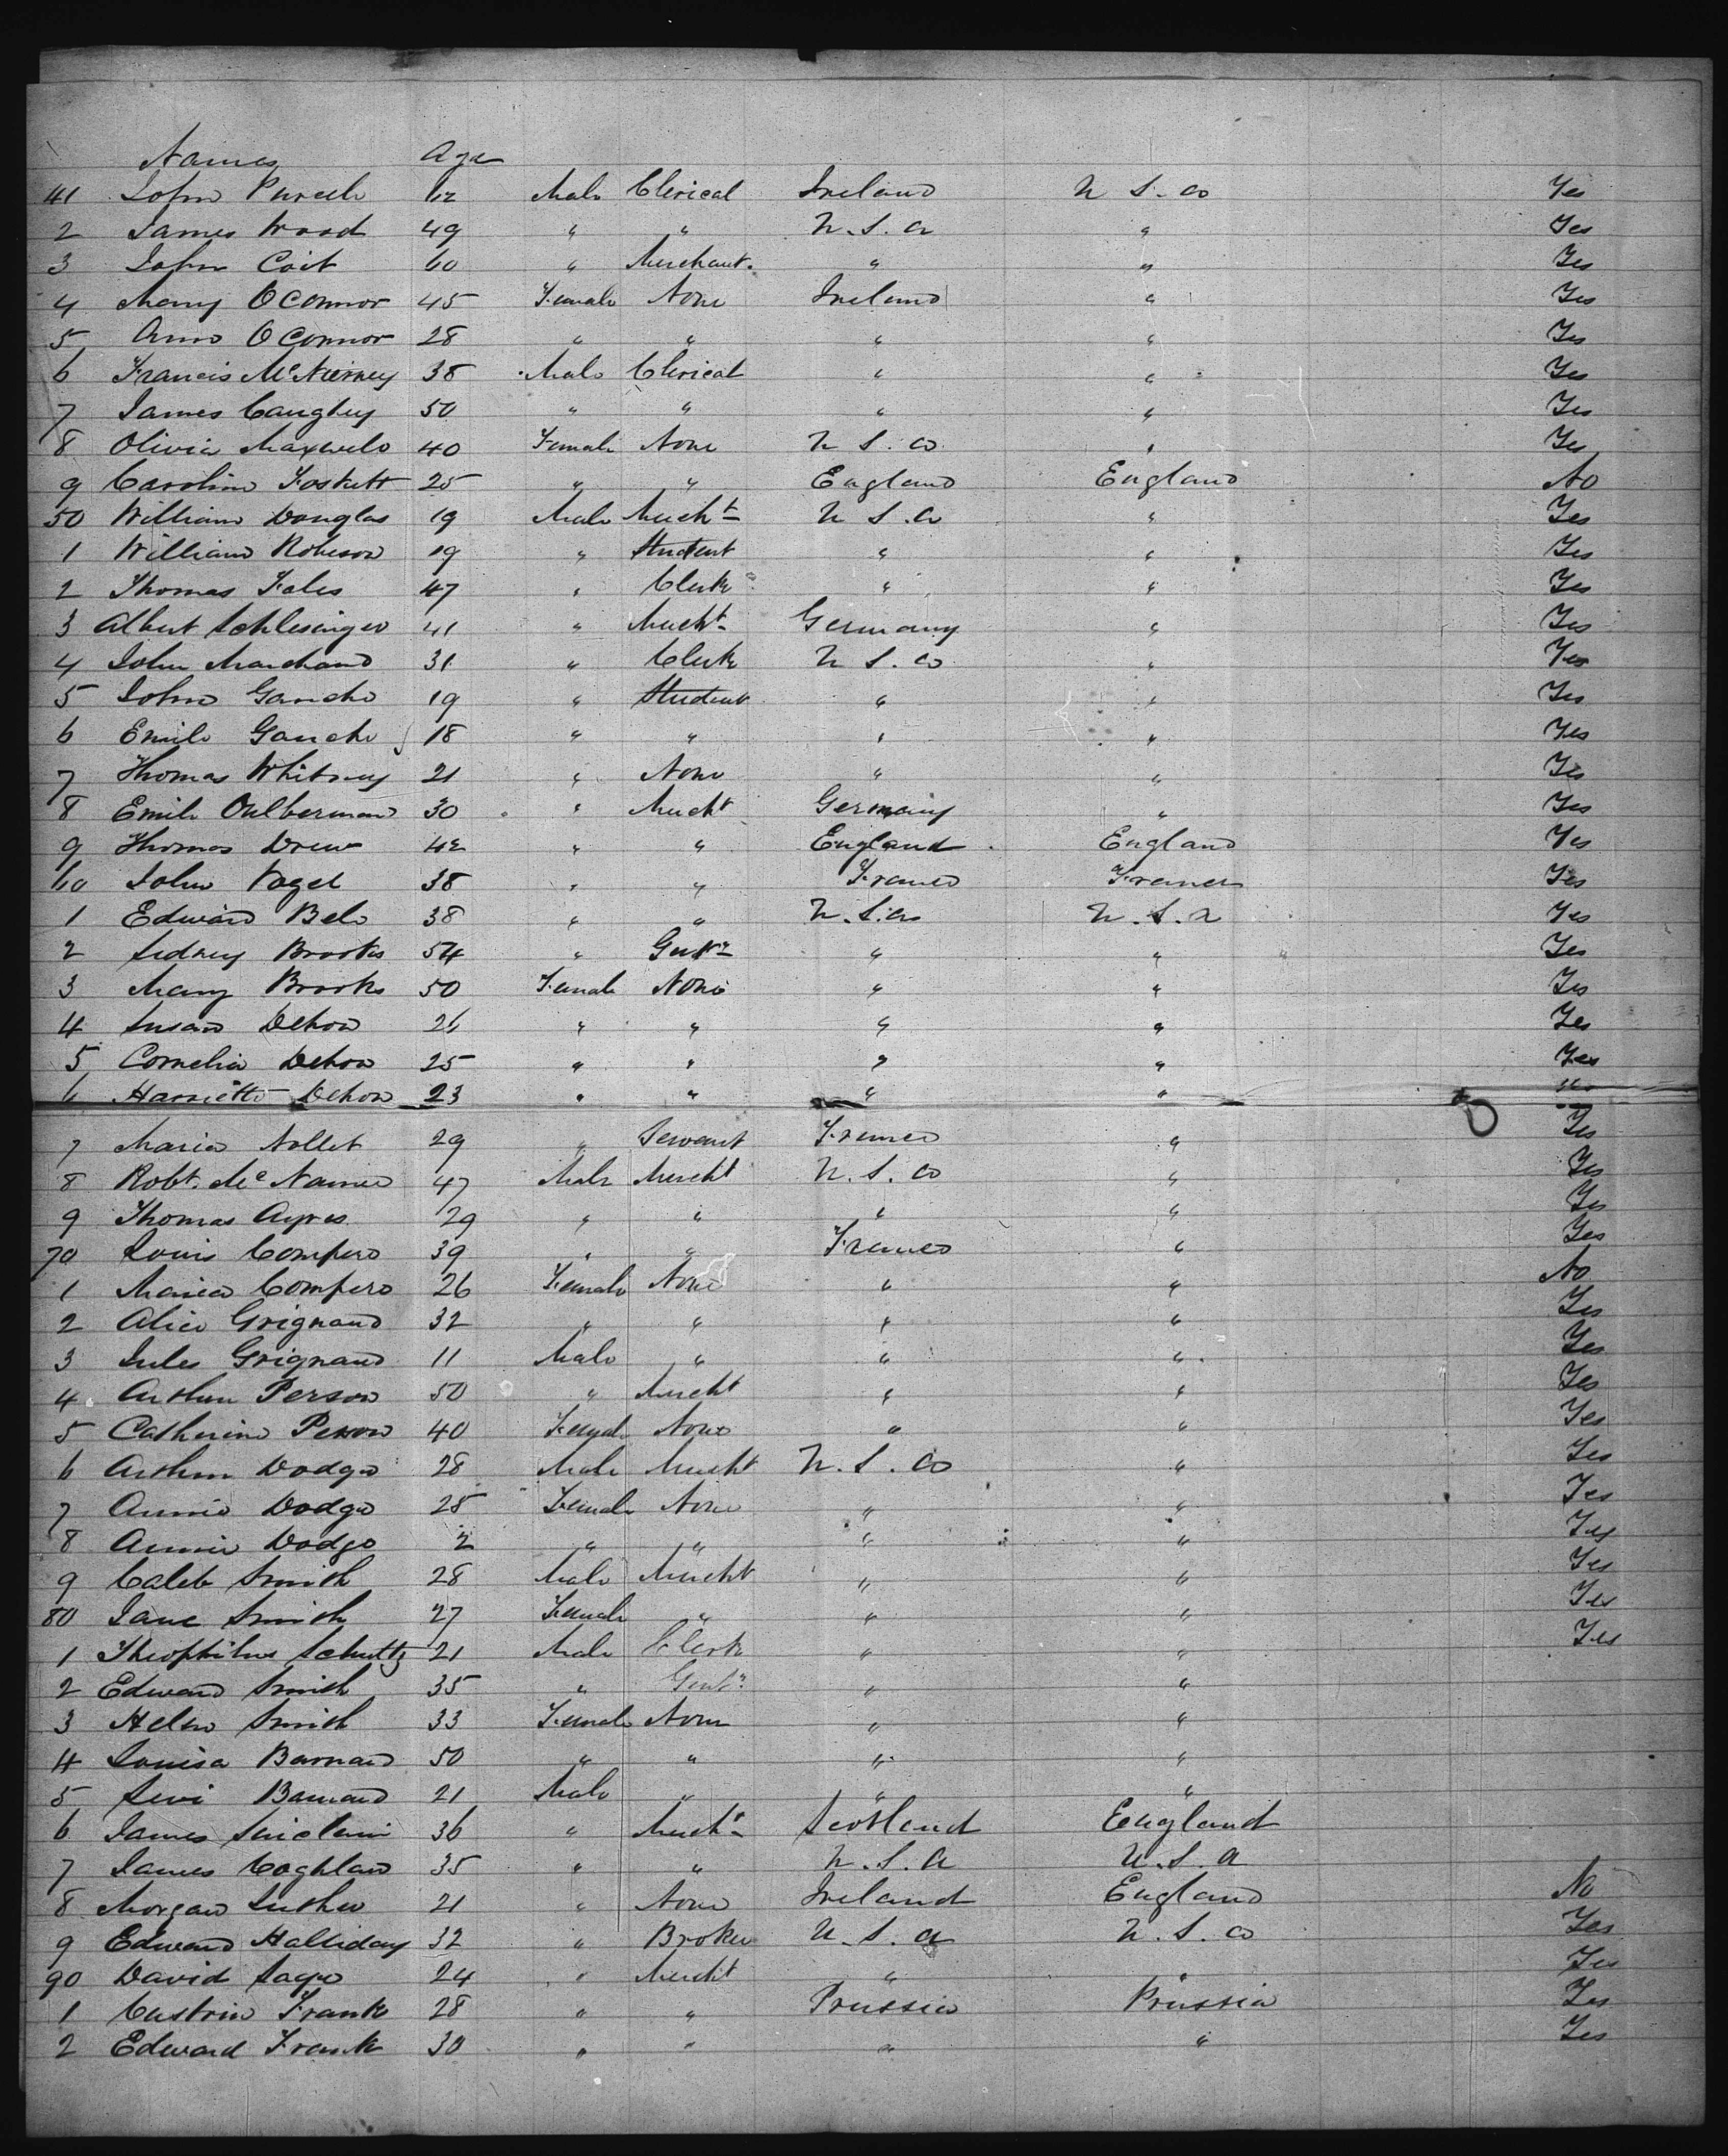 Names Age
41 John Purcell 62 Male Clerical Ireland U S. a Yes
2 James Wood 49 " " U. S. a " Yes
3 John Coit 60 " Merchant. " " Yes
4 Mary OConnor 45 Female None Ireland " Yes
5 Ann OConnor 28 " " " " Yes
6 Francis McNierney 38 Male Clerical " " Yes
7 James Caughey 50 " " " " Yes
8 Olivia Maxwell 40 Female None U S. a " Yes
9 Caroline Foskett 25 " " England England No
50 William Douglas 19 Male Mucht U S. a " Yes
1 William Robeson 19 " Student " " Yes
2 Thomas Fales 47 " Clerk " " Yes
3 Albert Schlesinger 41 " Mercht Germany " Yes
4 John Marchand 31 " Clerk U S. a " Yes
5 John Gauche 19 " Student " " Yes
6 Emile Gauche 18 " " " " Yes
7 Thomas Whitney 21 " None " " Yes
8 Emile Oulberman 30 " Mercht Germany " Yes
9 Thomas Drew 42 " " England England Yes
60 John Vogel 38 " " France France Yes
1 Edward Bell 38 " " U. S. a U. S. a Yes
2 Sidney Brooks 54 " Gentn " " Yes
3 Mary Brooks 50 Female None " " Yes
4 Susan Dehon 26 " " " " Yes
5 Cornelia Dehon 25 " " " " Yes
6 Harriette Dehon 23 " " " "
7 Maria Nollet 29 " Servant France " Yes
8 Robt. McNamee 47 Male Mercht U. S. a " Yes
9 Thomas Ayres 29 " " " " Yes
70 Louis Compere 39 " " France " Yes
1 Maria Compere 26 Female None " " No
2 Alice Grignand 32 " " " " Yes
3 Jules Grignand 11 Male " " " Yes
4 Arthur Person 50 " Mercht " " Yes
5 Catherine Person 40 Female None " " Yes
6 Arthur Dodge 28 Male Mercht U. S. a " Yes
7 Annie Dodge 25 Female None " " Yes
8 Annie Dodge 2 " " " " Yes
9 Caleb Smith 28 Male Mercht " " Yes
80 Jane Smith 27 Female " " " Yes
1 Theophilus Schultz 21 Male Clerk " " Yes
2 Edward Smith 35 " Gentn " "
3 Helen Smith 33 Female None " "
4 Louisa Barnard 50 " " " "
5 Levi Barnard 21 Male " " "
6 James Sinclair 36 " Mercht Scotland England
7 James Coghlan 35 " " U. S. a U. S. a
8 Morgan Luther 21 " None Ireland England No
9 Edward Halliday 32 " Broker U. S. a U. S. a Yes
90 David Sage 24 " Mercht " " Yes
1 Frank 28 " " Prussia Prussia Yes
2 Edward Frank 30 " " " " Yes